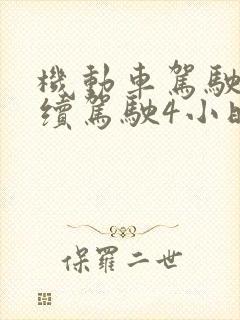 機動車駕駛
續駕駛4小時
保羅二世